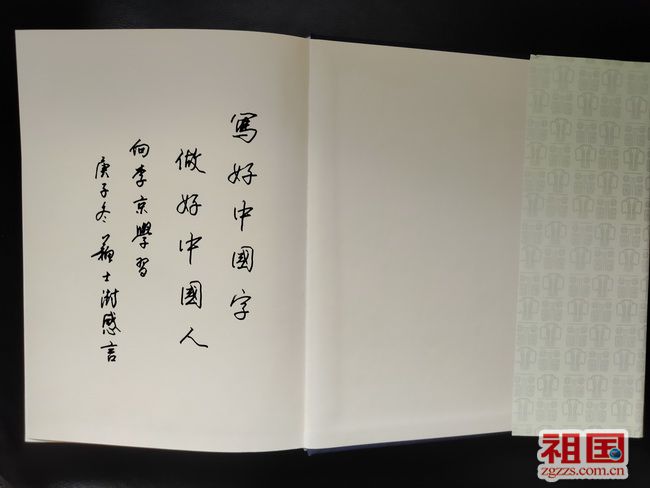 寫好中國字
做好中國人
向李京學習
庚子冬 蘇士澍感言
祖国
zgzzs.com.cn